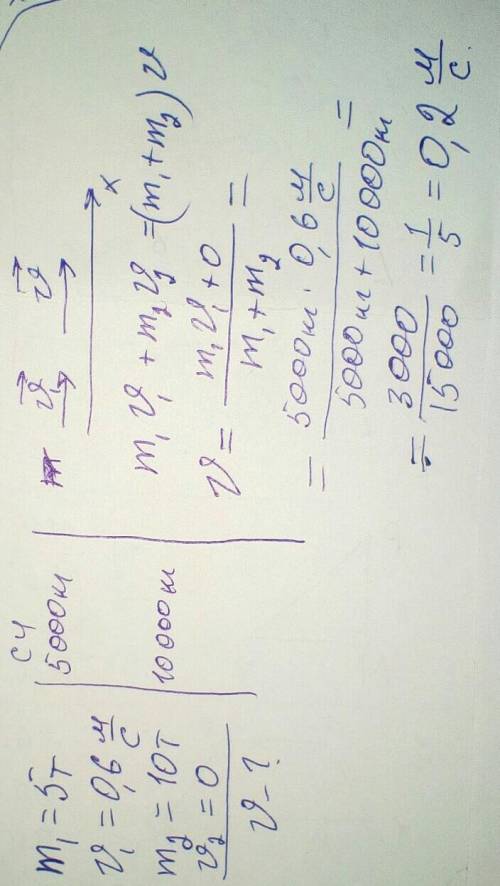 m₁ = 5т
υ₁ = 0,6 м/с
m₂ = 10т
υ₂ = 0
υ - ?
СИ
5000 кг
10000 кг
υ₁ υ
x
m₁υ₁ + m₂υ₂ = (m₁ + m₂)υ
υ = (m₁υ₁ + 0)/(m₁ + m₂) =
= (5000 кг · 0,6 м/с)/(5000 кг + 10000 кг) =
= 3000/15000 = 1/5 = 0,2 м/с.